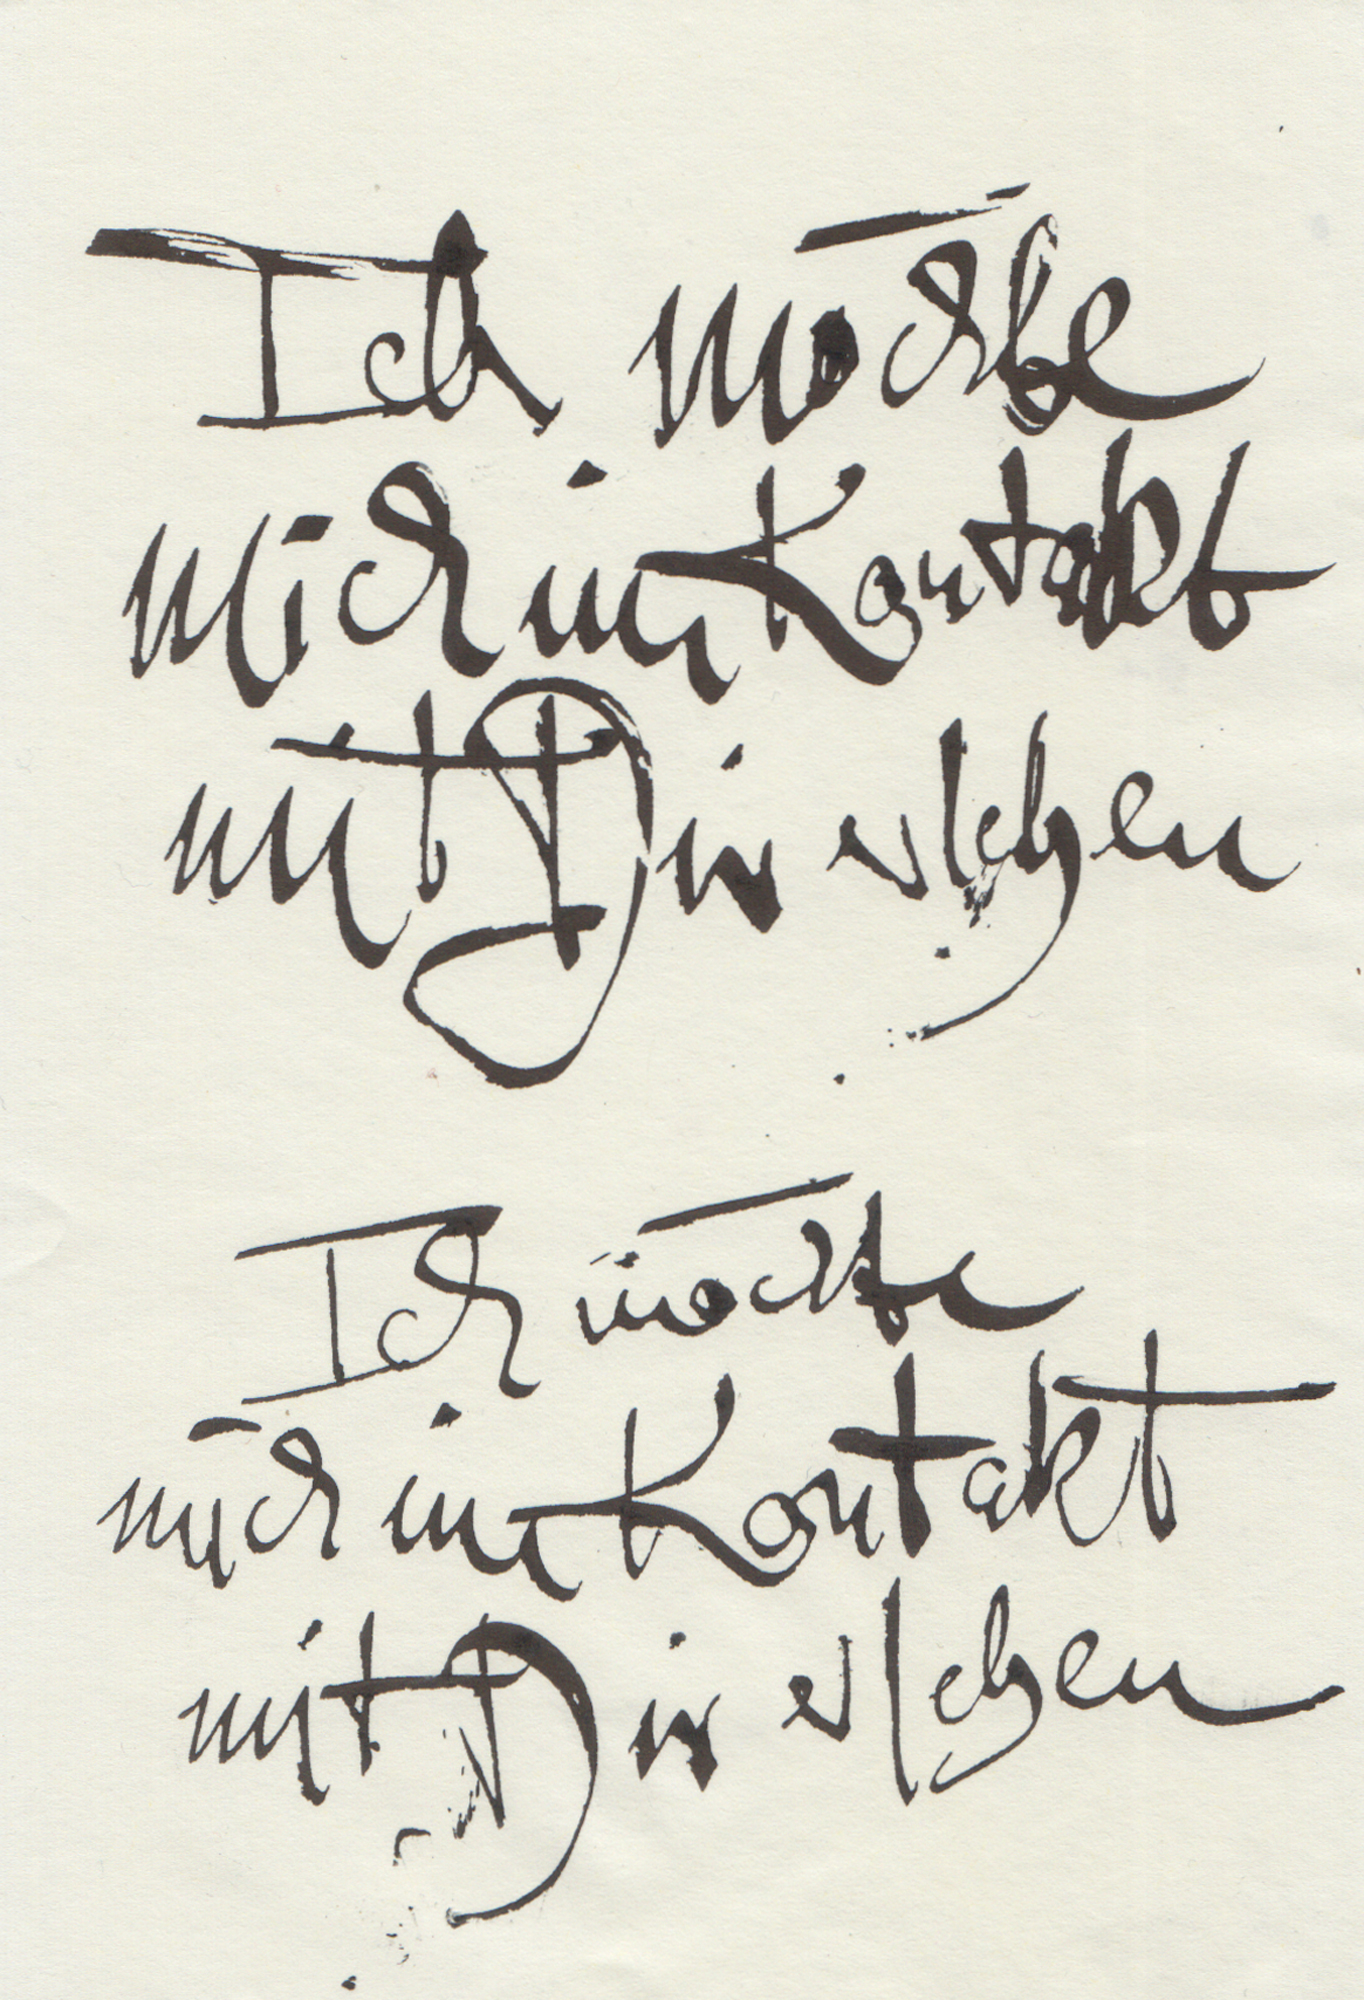 Ich möchte
mich in Kontakt
mit Dir erleben
Ich möchte
mich in Kontakt
mit Dir erleben